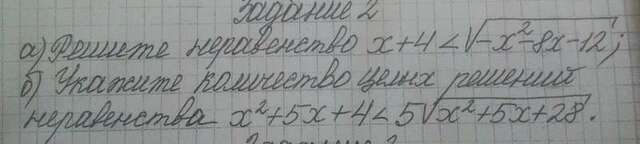 Задание 2
а) Решите неравенство x+4<√-x²-8x-12;
б) Укажите количество целых решений
неравенства x²+5x+4<5√x²+5x+28.